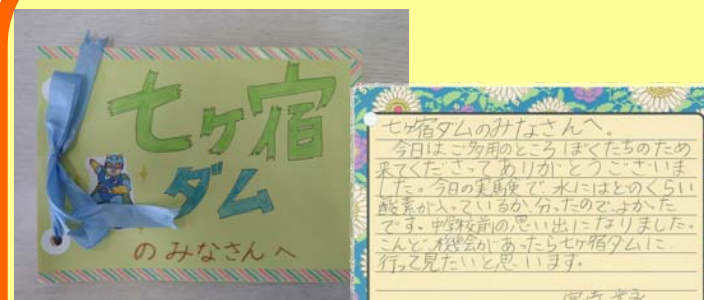 七ヶ宿
ダム
のみなさんへ
七ヶ宿ダムのみなさんへ。
今日は、ご多用のところ ぼくたちのため
来てくださってありがとうございま
した。今日の実験で、水にはどのくらい
酸素が入っているか、分ったので、よかった
です。中学校前の思い出になりました。
こんど、機会があったら七ヶ宿ダムに
行って見たいと思います。